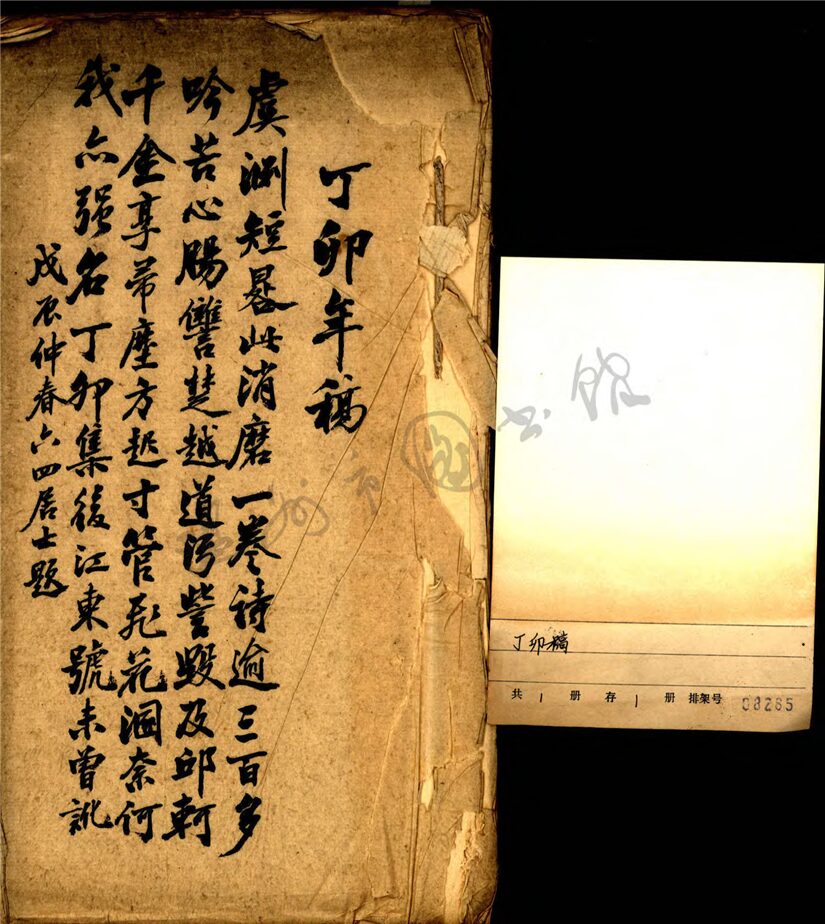 丁卯年稿
虞淵短晷此消磨一卷詩逾三百多
吟苦心腸讐楚越道污訾毀及邱軻
千金享帚塵方起寸管飛花涸奈何
我亦强名丁卯集後江東號未曾訛
戊辰仲春六四居士題
温州市图书馆
丁卯稿
共 1 册 存 1 册 排架号 08265